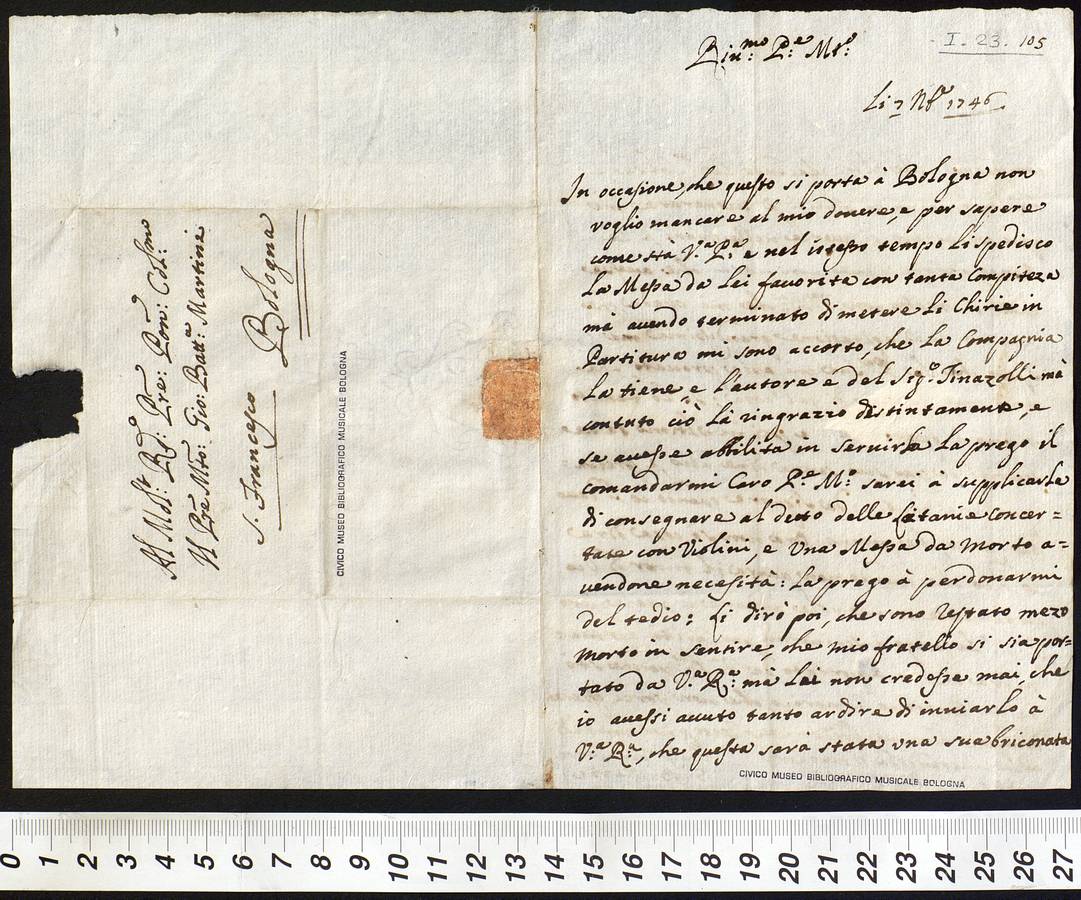 Al Molt: Rdo: Pre: Pron: Col:mo
Il Pre Mro: Gio: Batta: Martini
S. Francesco Bologna
CIVICO MUSEO BIBLIOGRAFICO MUSICALE BOLOGNA
I. 23. 105
P.e M.o
Li 7 Nbe 1746
In occasione, che questo si porta à Bologna non
voglio mancare al mio douere, e per sapere
come stà V.a P.a e nel istesso tempo li spedisco
La Messa da Lei fauorita con tanta Compiteza
mà auendo terminato di metere Li Chirie in
Partitura mi sono accorto, che La Compagnia
La tiene, e L'autore e del Sig.o Tinazolli mà
contuto ciò Là ringrazio distintamente, e
se auesse abbilità in seruirla La prego il
comandarmi Caro P.e M.o sarei à supplicarLe
di consegnare al detto delle Litanie Concer=
tate con Violini, e Vna Messa da Morto a=
uendone necesità: La prego à perdonarmi
del tedio: Li dirò poi, che sono restato mezo
morto in sentire, che mio fratello si sia por=
tato da V.a R.a mà Lei non credesse mai, che
io auessi auuto tanto ardire di inuiarlo à
V.a R.a, che questa sarà stata vna sua briconata
CIVICO MUSEO BIBLIOGRAFICO MUSICALE BOLOGNA
0 1 2 3 4 5 6 7 8 9 10 11 12 13 14 15 16 17 18 19 20 21 22 23 24 25 26 27